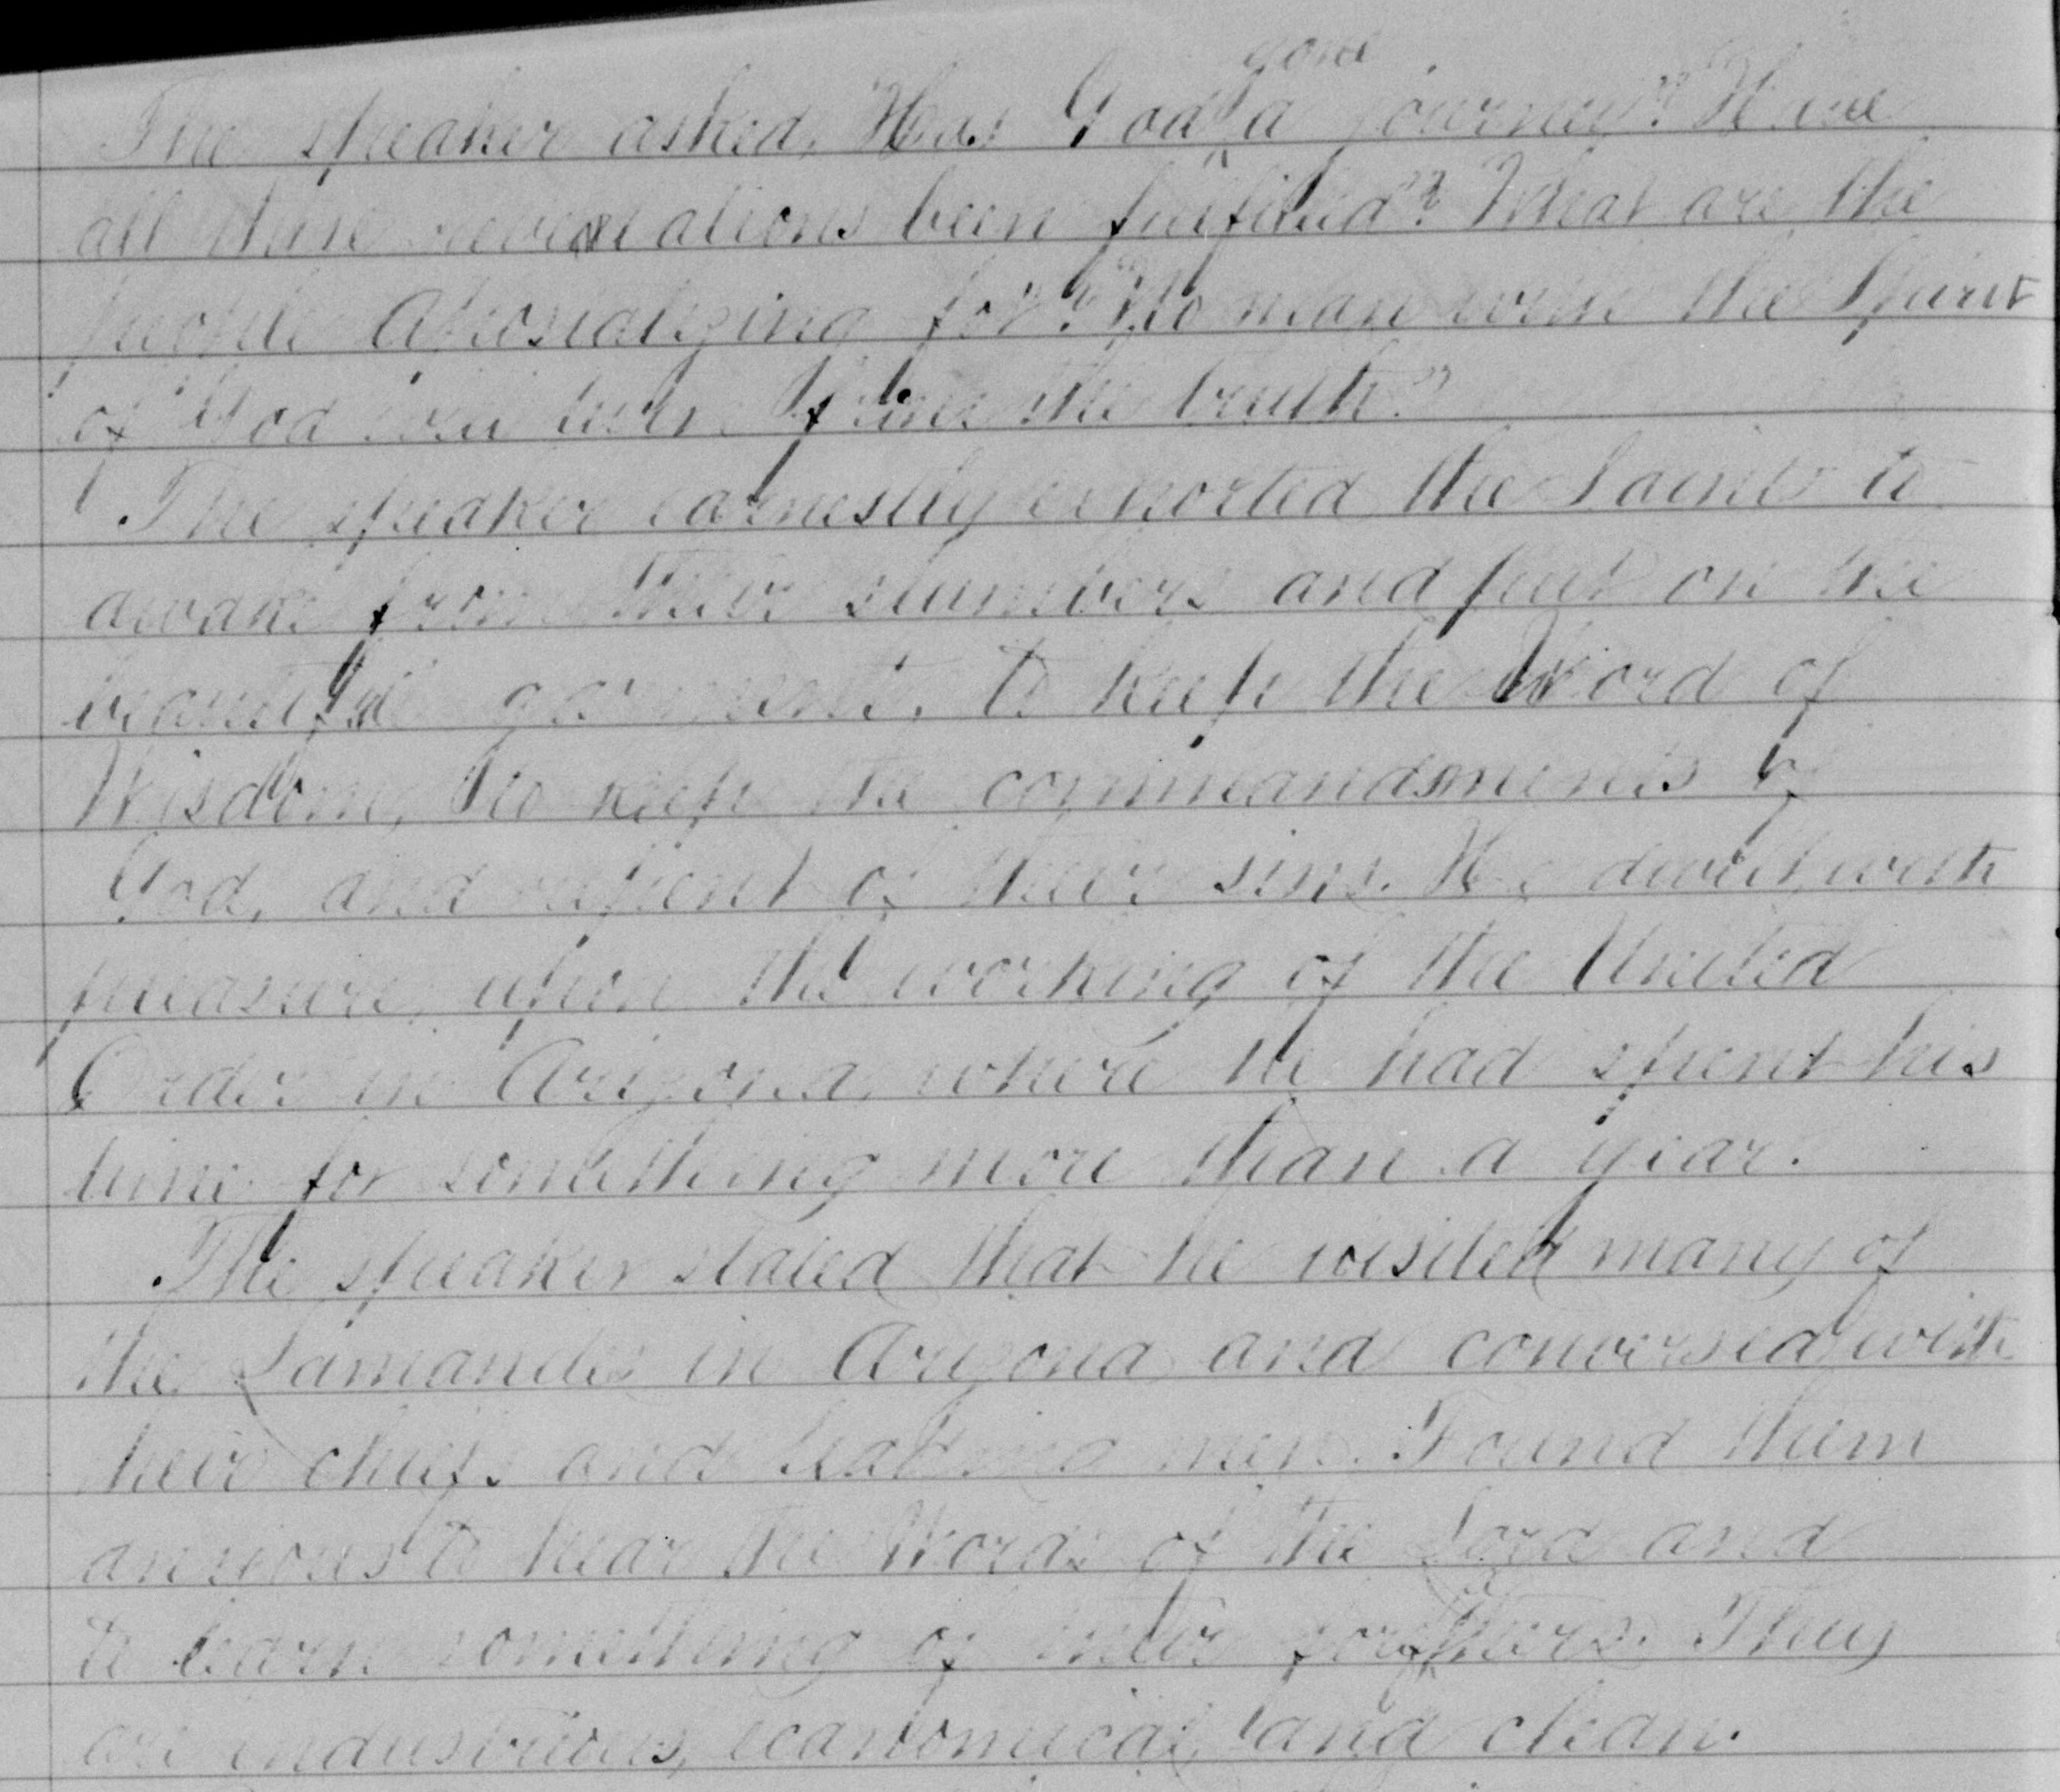 The speaker asked, "Has God gone a journey"? "Have
all these revelations been fulfilled"? "What are the
people Apostatizing for"? "No man with the Spirit
of God will ever the truth."
The speaker earnestly exhorted the Saints to
awake from their slumbers and put on the
beautiful garments, to keep the Word of
Wisdom, to keep the commandsments of
God, and repent of their sins. He dwelt, with
pleasure, upon the working of the United
Order in Arizona, where he had spent his
time for something more than a year.
The speaker stated that he visited many of
the Lamanites in Arizona and conversed with
their chiefs and leading men. Found them
anxious to hear the Words of the Lord and
to learn something of their forefathers. They
are industrious, economical, and clean.